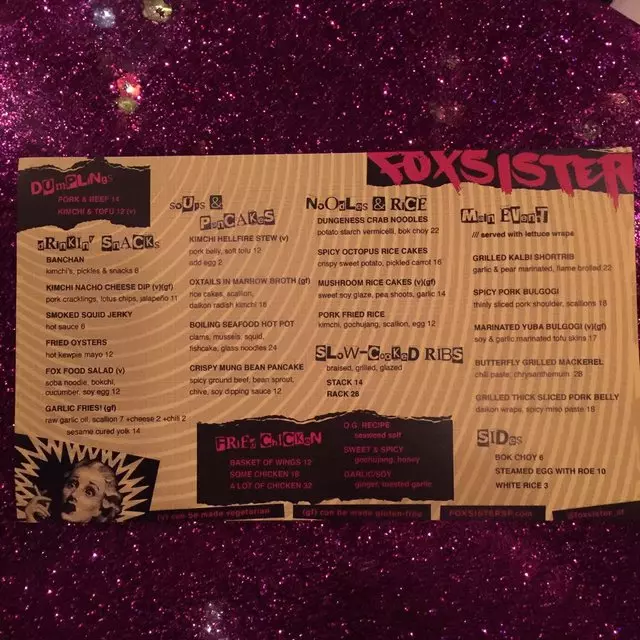 FOXSISTER
DUmPLiNGs
PORK & BEEF 14
KIMCHI & TOFU 12 (v)
dRiNKiN' SNACKs
BANCHAN
kimchi's, pickles & snacks 8
KIMCHI NACHO CHEESE DIP (v)(gf)
pork cracklings, lotus chips, jalapeño 11
SMOKED SQUID JERKY
hot sauce 6
FRIED OYSTERS
hot kewpie mayo 12
FOX FOOD SALAD (v)
soba noodle, bokchi,
cucumber, soy egg 12
GARLIC FRIES! (gf)
raw garlic oil, scallion 7 +cheese 2 +chili 2
sesame cured yolk 14
sOUps &
PaNCAKEs
KIMCHI HELLFIRE STEW (v)
pork belly, soft tofu 12
add egg 2
OXTAILS IN MARROW BROTH (gf)
rice cakes, scallion,
daikon radish kimchi 18
BOILING SEAFOOD HOT POT
clams, mussels, squid,
fishcake, glass noodles 24
CRISPY MUNG BEAN PANCAKE
spicy ground beef, bean sprout,
chive, soy dipping sauce 12
NoOdLEs & RiCE
DUNGENESS CRAB NOODLES
potato starch vermicelli, bok choy 22
SPICY OCTOPUS RICE CAKES
crispy sweet potato, pickled carrot 16
MUSHROOM RICE CAKES (v)(gf)
sweet soy glaze, pea shoots, garlic 14
PORK FRIED RICE
kimchi, gochujang, scallion, egg 12
SLoW-CoOKeD RIBS
braised, grilled, glazed
STACK 14
RACK 26
FRiEd CHiCKEN
BASKET OF WINGS 12
SOME CHICKEN 18
A LOT OF CHICKEN 32
O.G. RECIPE
seaweed salt
SWEET & SPICY
gochujang, honey
GARLIC/SOY
ginger, toasted garlic
MaiN EVeNT
/// served with lettuce wraps
GRILLED KALBI SHORTRIB
garlic & pear marinated, flame broiled 22
SPICY PORK BULGOGI
thinly sliced pork shoulder, scallions 18
MARINATED YUBA BULGOGI (v)(gf)
soy & garlic marinated tofu skins 17
BUTTERFLY GRILLED MACKEREL
chili paste, chrysanthemum 28
GRILLED THICK SLICED PORK BELLY
daikon wraps, spicy miso paste 18
SiDEs
BOK CHOY 6
STEAMED EGG WITH ROE 10
WHITE RICE 3
(v) can be made vegetarian
(gf) can be made gluten-free
FOXSISTERSF.com
@foxsister_sf